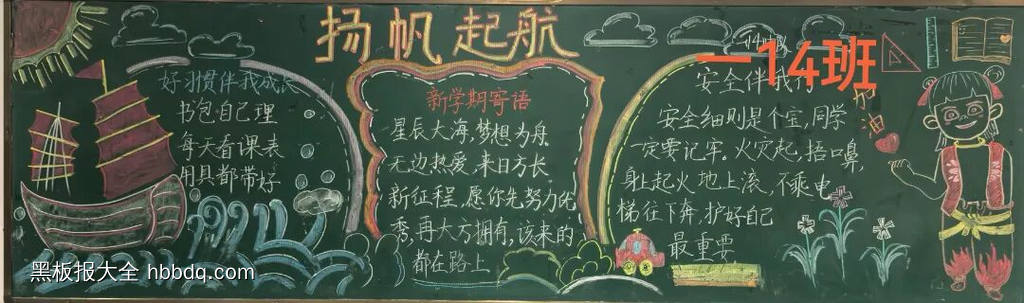 扬帆起航
好习惯伴我成长
书包自己理
每天看课表
用具都带好
新学期寄语
星辰大海,梦想为舟
无边热爱,来日方长
新征程,愿你先努力优
秀,再大方拥有,该来的
都在路上
一14班
安全伴我行
安全细则是个宝,同学
一定要记牢。火灾起,捂口鼻,
身上起火地上滚,不乘电
梯往下奔,护好自己
最重要
加油
黑板报大全 hbbdq.com